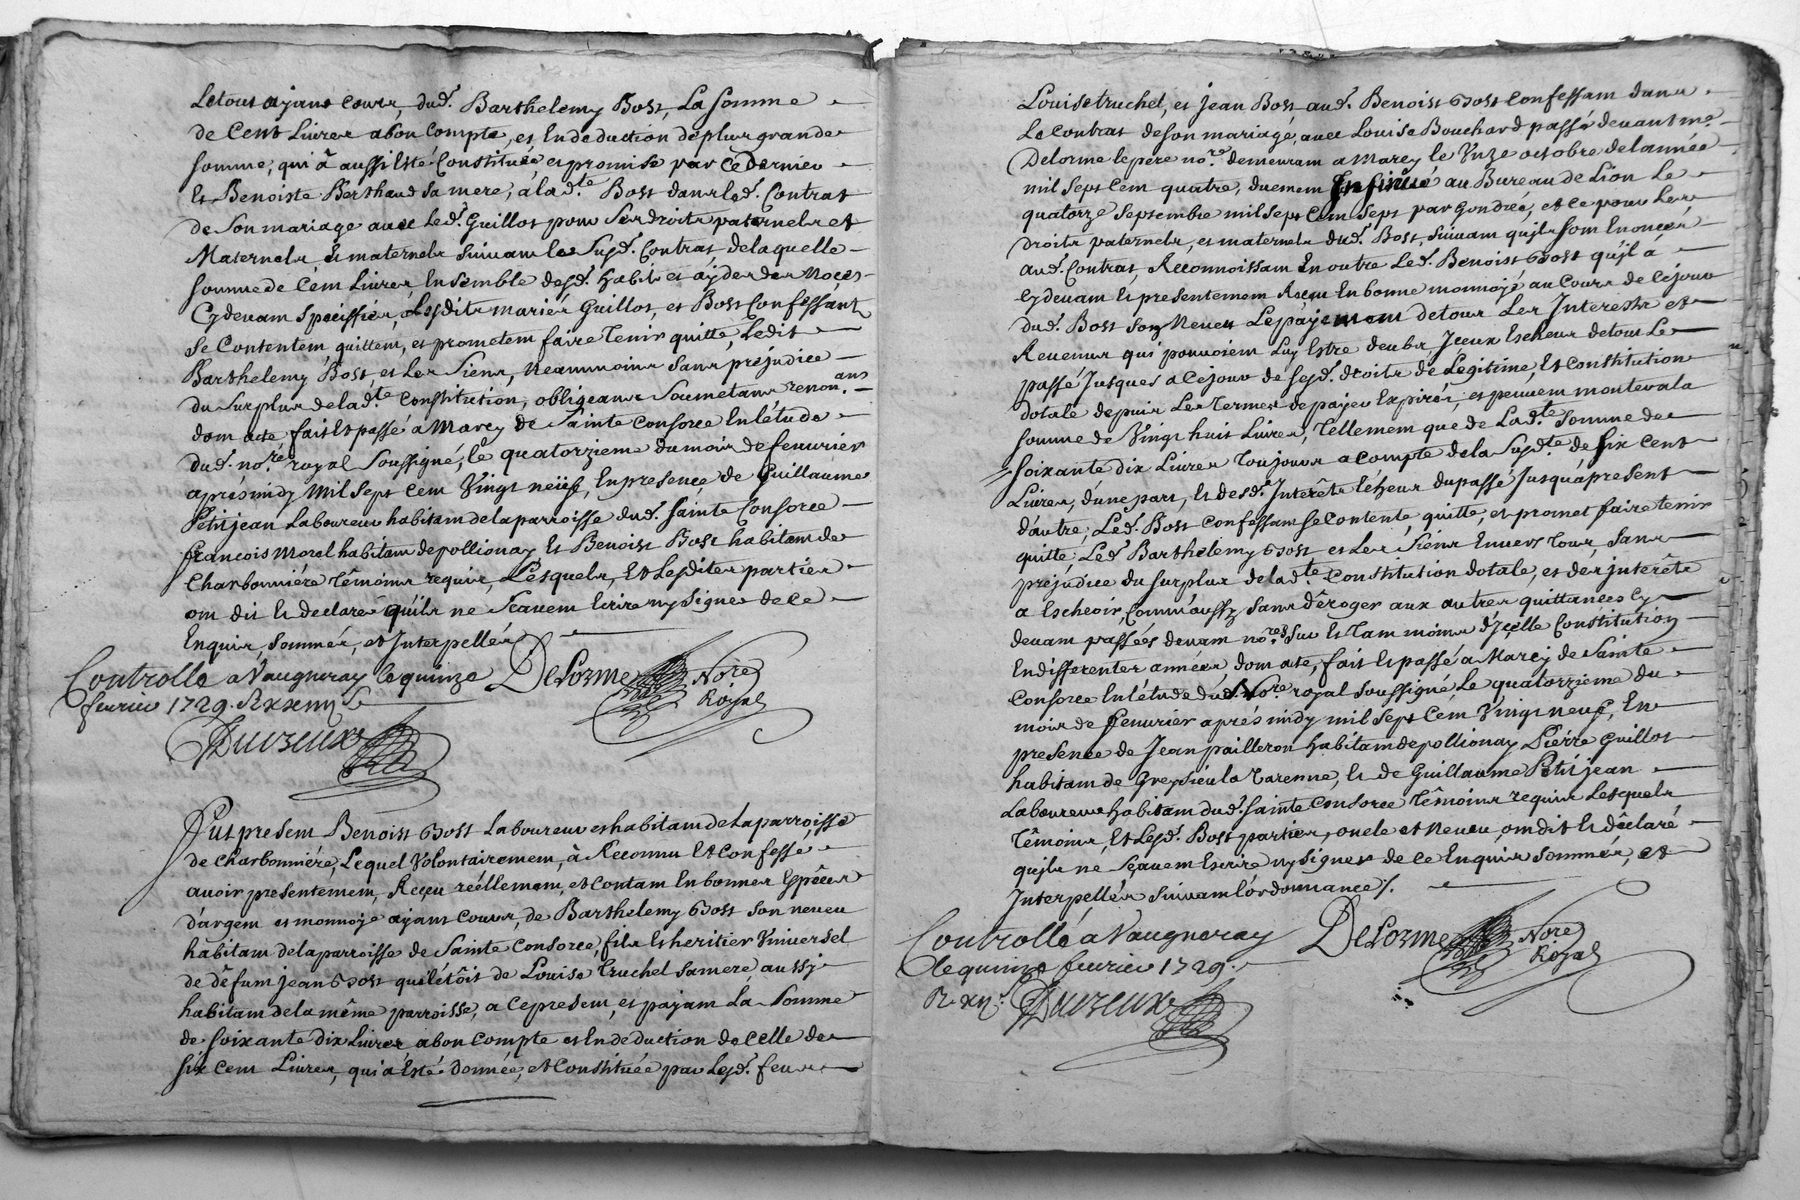 Letout ayant cours, dud.t Barthelemy Bost, La somme
de Cent Livres abon Compte, et En deduction de plus grande
somme, qui à aussi Esté Constituée et promise par ce dernier
Et Benoiste Berthaud sa mere, à lad.te Bost dans led.t Contrat
de Son mariage avec Led.t Guillot pour ses droits paternels et
Maternels Et maternels suivant le Susd.t Contrat, de laquelle
somme de Cent Livres, Ensemble desd.t habits et ayde des Noces
Cydevant Speciffiés, Lesdits mariés Guillot, et Bost Confessant
Se Contentent quittent, et prometent faire Tenir quitte, Ledit
Barthelemy Bost, et Les Siens, Neanmoins Sans prejudice
du Surplus de lad.te Constitution, obligeans Soumetans renon.ans
dont acte fait Et passé à Marcy de Sainte Consorce En létude
dud. no.re royal Soussigné, le quatorzieme du mois de fevvrier
aprésmidy Mil Sept Cent Vingt neüf, En presence de Guillaume
Petitjean Laboureur habitant de la parroisse dud. Sainte Consorce
françois Morel habitant de pollionay Et Benoist Bost habitant de
Charbonniére Témoins requis, Lesquels, Et Lesdites parties
ont dit Et declaré quils ne Scavent Ecrire ny Signer de ce
Enquis, Sommés, et Interpellés
Controllé a Vaugneray le quinze
fevrier 1729. R xxiiij s
DeLorme Nore
Royal
Duvzeux
Fut present Benoist Bost Laboureur et habitant de La parroisse
de Charbonniére, Lequel Volontairement, à Reconnu Et Confessé
avoir presentement, Reçeu réellement, et Contant En bonnes Espéces
d'argent et monnoye ayant Cours, de Barthelemy Bost Son neveu
habitant de la parroisse de Sainte Consorce, fils Et heritier Universel
de défunt jean Bost qu'ilétoit de Louise Truchel Sa mere, aussj
habitant de la même parroisse, a Cepresent, et payant La Somme
de Soixante dix Livres abon Compte et En deduction de celle de
Six Cent Livres, qui à Esté donnée, et Constituée par Lesd.t feus
Louise truchel, et jean Bost aud.t Benoist Bost Confessant dans
Le Contrat de son mariage, avec Louise Bouchard passé devant me
Delorme le pere no.re demeurant a Marcy le Unze octobre de l'année
mil Sept Cent quatre, duement Insinué au Bureau de Lion Le
quatorze Septembre mil Sept Cent Sept par Gondrée, et ce pour Les
droits paternels, et maternels dud.t Bost, Suivant quils sont Enoncés
aud. Contrat, Reconnoissant En outre Led. Benoist Bost qu'il à
Cydevant Et presentement Reçeu En bonne monnoyé au Cours de Cejour
dud.t Bost Son Neveu Le payement de tous Les Interests et
Revenus qui pouvoient Luy Estre deubs Jceux Escheus de tout Le
passé Jusques a Cejour de Sesd.t droits de Legitime, Et Constitution
dotale depuis Les Termes de payer Expirés, et peuvent monter a la
somme de Vingt huit Livres, Tellement que de Lad.te Somme de
Soixante dix Livres Toujours acompte de la Susd.te de Six Cent
Livres, d'une part, Et desd.t Interêts Echeus du passé Jusquáprésent
d'autre, Led.t Bost Confessant Se Contente, quitte, et promet faire tenir
quitte, Led.t Barthelemy Bost et Les Siens Envers Tous, Sans
préjudice du Surplus de lad.te Constitution dotale, et des jnterêts
a Escheoir, Comm'aussy Sans déroger aux autres quittances Cy
devant passées devant no.res Sur Et Tant moins d'Jçelle Constitution
En differentes années dont acte, fait Et passé a Marcy de Sainte
Consorce En létude dud. Nore royal Soussigné, Le quatorzieme du
mois de fevvrier aprés midy mil Sept Cent Vingt neuf, En
presence de Jean pailleron habitant de pollionay Piérre Guillot
habitant de Grepsieu la Varenne, Et de Guillaume Petitjean
Laboureur habitant dud.t Sainte Consorce Témoins requis Lesquels
Témoins, Et Lesd.t Bost parties, oncle et Neveu, ont dit Et déclaré
quils ne Sçavent Escrire ny Signer de ce Enquis Sommés, et
Interpellés Suivant l'ordonnance /.
Controllé a Vaugneray
le quinze fevrier 1729.
R xij s
DeLorme Nore
Royal
Duvzeux